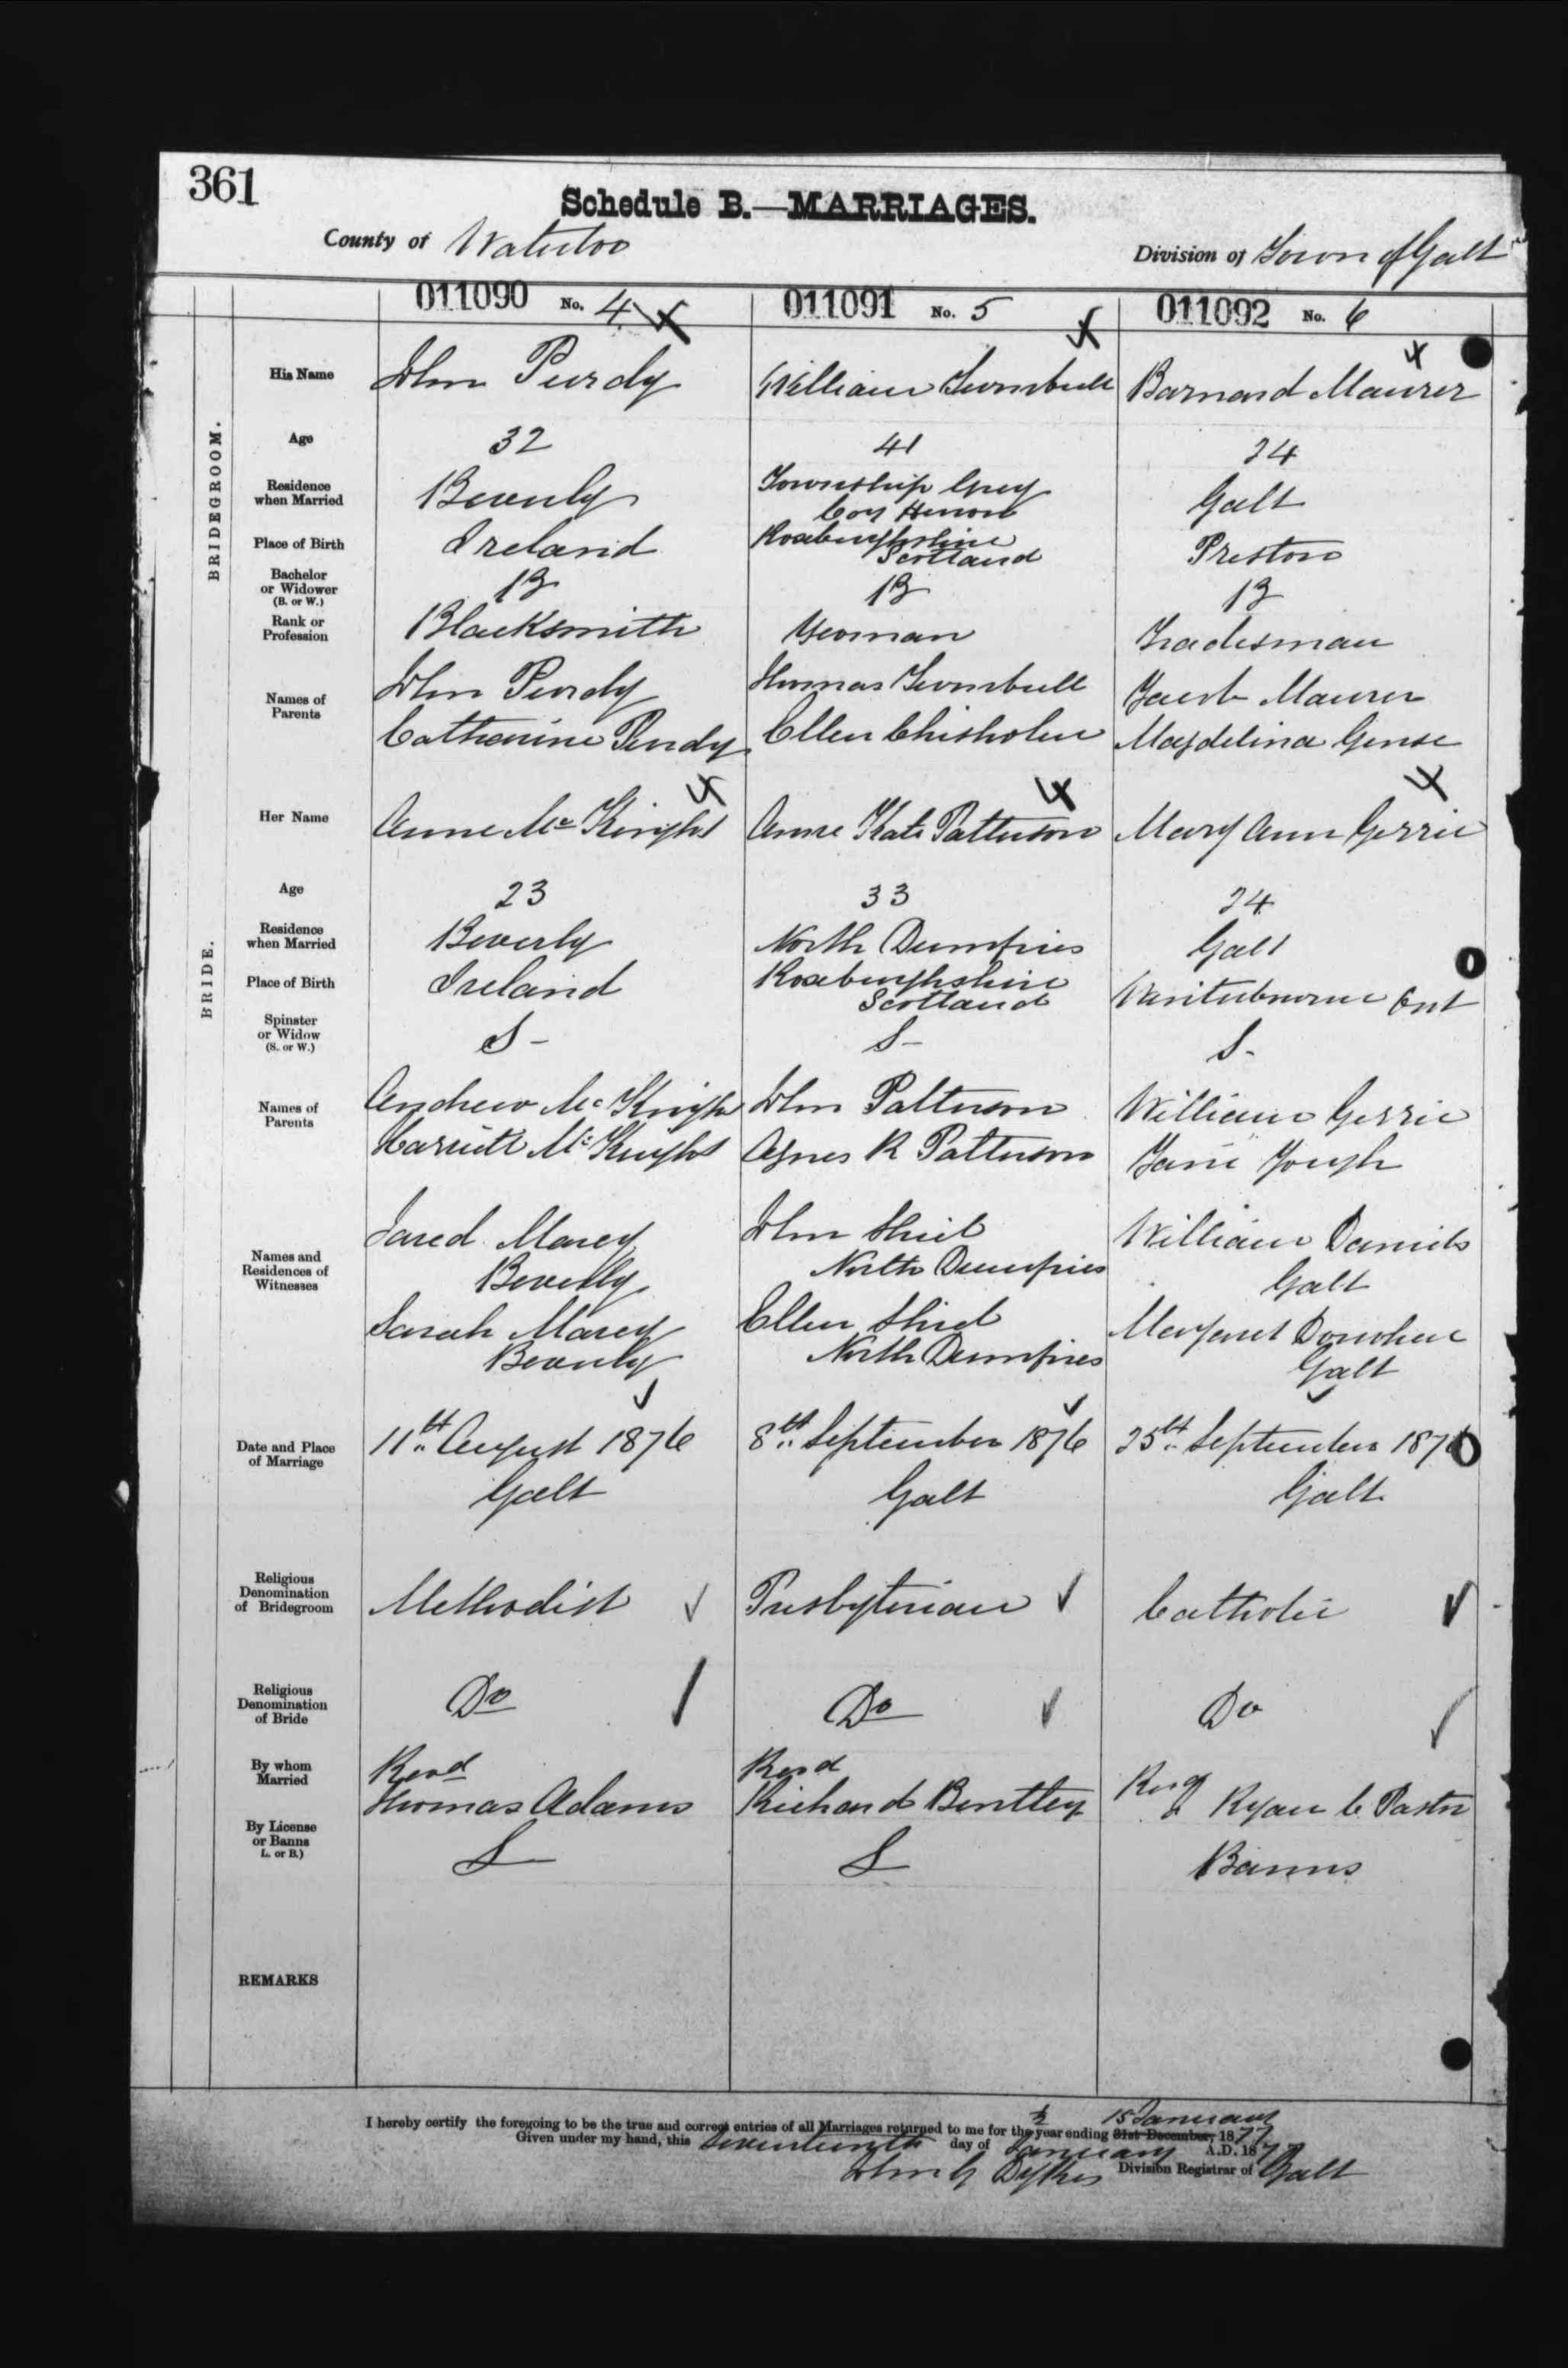 361
Schedule B.—MARRIAGES.
County of Waterloo
Division of Town of Galt
011090 No. 4
011091 No. 5
011092 No. 6
BRIDEGROOM.
His Name
John Purdy
William Turnbull
Barnard Maurer
Age
32
41
24
Residence when Married
Beverly
Township Grey
Coy Huron
Galt
Place of Birth
Ireland
Roxburghshire
Scotland
Preston
Bachelor or Widower (B. or W.)
B
B
B
Rank or Profession
Blacksmith
Yeoman
Tradesman
Names of Parents
John Purdy
Catherine Purdy
Thomas Turnbull
Ellen Chisholm
Jacob Maurer
Magdelina Gense
BRIDE.
Her Name
Anne McKnight
Anne Kate Patterson
Mary Ann Gerrie
Age
23
33
24
Residence when Married
Beverly
North Dumfries
Galt
Place of Birth
Ireland
Roxburghshire
Scotland
Ont
Spinster or Widow (S. or W.)
S-
S-
S-
Names of Parents
Andrew McKnight
Harriett McKnight
John Patterson
Agnes R Patterson
William Gerrie
Jane Gough
Names and Residences of Witnesses
Jared Marcy
Beverly
Sarah Marcy
Beverly
John Shiel
North Dumfries
Ellen Shiel
North Dumfries
William Daniels
Galt
Margaret
Galt
Date and Place of Marriage
11th August 1876
Galt
8th September 1876
Galt
25th September 1876
Galt
Religious Denomination of Bridegroom
Methodist
Presbyterian
Catholic
Religious Denomination of Bride
Do
Do
Do
By whom Married
Revd
Thomas Adams
Revd
Richard Bentley
Revd
Ryan C. Pastor
By License or Banns L. or B.)
L
L
Banns
REMARKS
I hereby certify the foregoing to be the true and correct entries of all Marriages returned to me for the ½ year ending 31st December, 15 January 1877
Given under my hand, this Seventeenth day of January A.D. 1877
John G Dykes Division Registrar of Galt